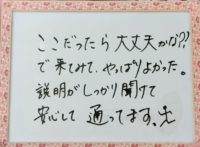 ここだったら大丈夫かな?!
で来てみて、やっぱりよかった。
説明がしっかり聞けて
安心して通ってます。